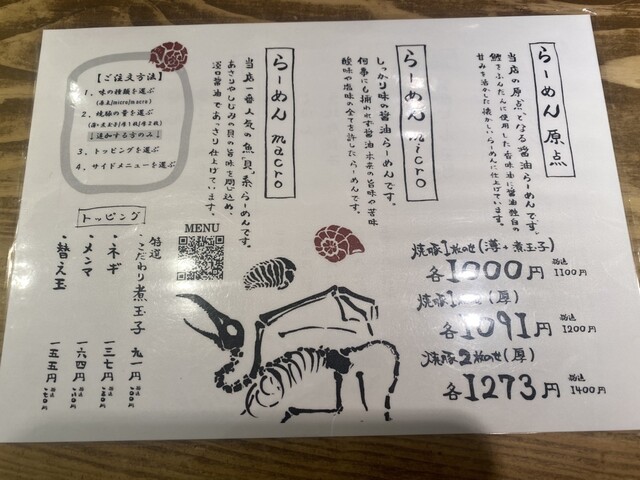 らーめん 原点
当店の原点となる醤油らーめんです。
鰹をふんだんに使用した香味油に醤油独自の
甘みを活かした懐かしいらーめんに仕上げています。
らーめん micro
しっかり味の醤油らーめんです。
何事にも捕われず醤油本来の旨味や苦味
酸味や塩味の全てを許したらーめんです。
らーめん macro
当店一番人気の魚貝系らーめんです。
あさりやしじみの貝の旨味を閉じ込め、
淡口醤油であっさり仕上げています。
【ご注文方法】
1、味の種類を選ぶ
(原点/micro/macro)
2、焼豚の量を選ぶ
↓追加する方のみ↓
3、トッピングを選ぶ
4、サイドメニューを選ぶ
トッピング
・こだわり煮玉子 九一円
・ネギ 一三七円
・メンマ 一六四円
・替え玉 一五五円
MENU
焼豚1枚のせ(薄+煮玉子)
各1000円 税込1100円
焼豚1枚のせ(厚)
各1091円 税込1200円
焼豚2枚のせ(厚)
各1273円 税込1400円